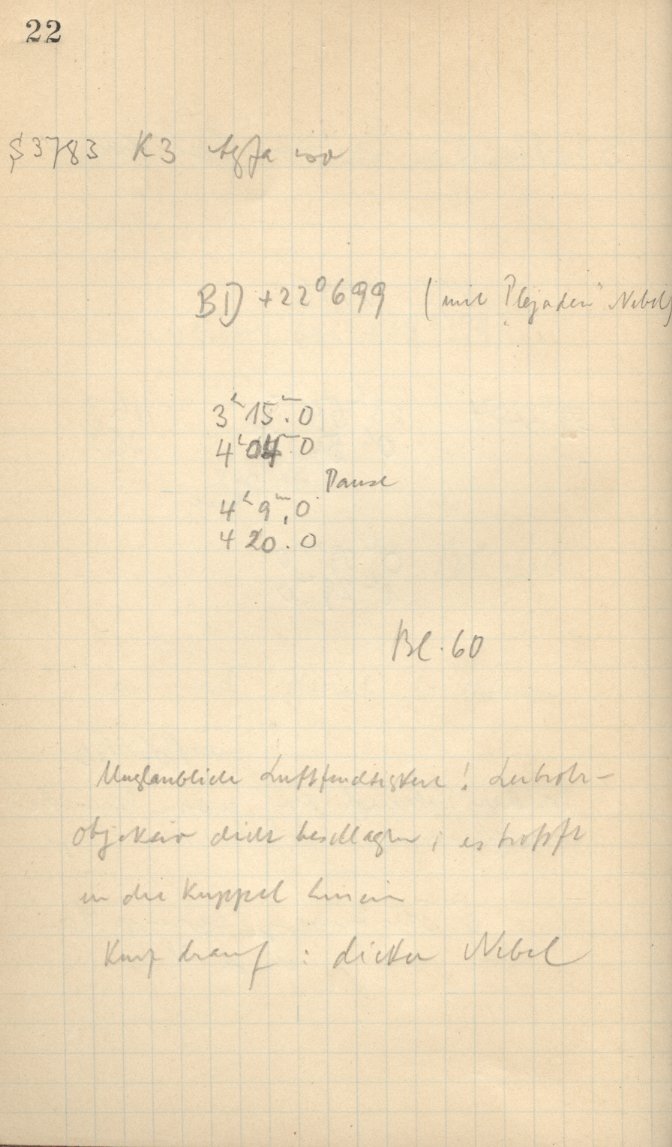 22
S3783 K3 Agfa iso
BD +22°699 (mit "Plejaden" Nebel)
3ʰ15ᵐ.0
4ʰ04ᵐ.0
Pause
4ʰ9ᵐ.0
4 20.0
Bl. 60
Unglaubliche Luftfeuchtigkeit! Leitrohr-
objektiv dicht beschlagen; es tropft
in die Kuppel hinein
Kurz drauf: dicker Nebel